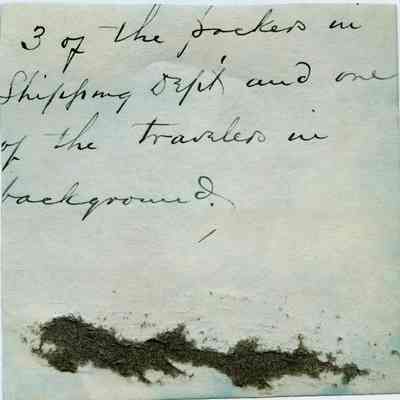 3 of the packers in
Shipping Dep't and one
of the travelers in
background.